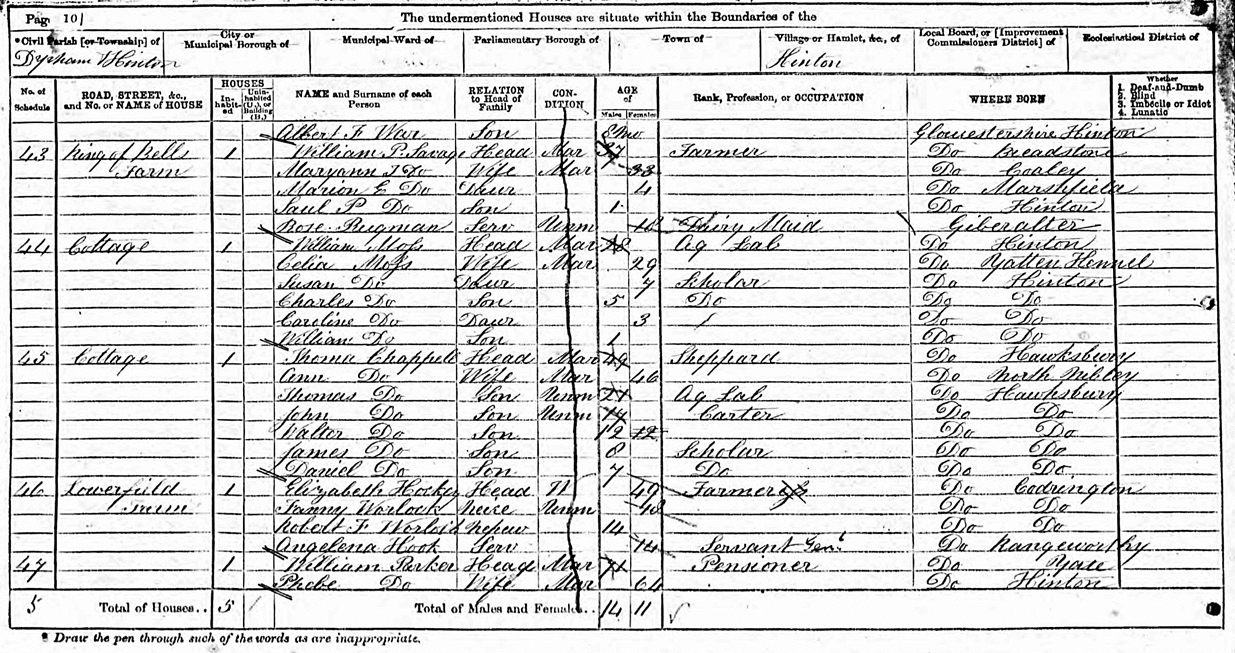 Page 10 The undermentioned Houses are situate within the Boundaries of the
*Civil Parish [or Township] of City or Municipal Borough of Municipal Ward of Parliamentary Borough of Town of Village or Hamlet, &c., of Local Board, or [Improvement Commissioners District] of Ecclesiastical District of
Dyrham & Hinton Hinton
No. of Schedule ROAD, STREET, &c., and No. or NAME of HOUSE HOUSES Inhabited Uninhabited (U.), or Building (B.) NAME and Surname of each Person RELATION to Head of Family CONDITION AGE of Males Females Rank, Profession, or OCCUPATION WHERE BORN Whether 1. Deaf-and-Dumb 2. Blind 3. Imbecile or Idiot 4. Lunatic
Albert F War Son 8mo Gloucestershire Hinton
43 Ring of Bells 1 William P. Savage Head Mar 37 Farmer Do Breadstone
Farm Maryann J Do Wife Mar 33 Do Coaley
Marion E Do Daur 4 Do Marshfield
Saul P Do Son 1 Do Hinton
Rose Rugman Serv Unm 18 Dairy Maid Giberalter
44 Cottage 1 William Moss Head Mar 28 Ag Lab Do Hinton
Celia Moss Wife Mar 29 Do Yatten Kennel
Susan Do Daur 7 Scholar Do Hinton
Charles Do Son 5 Do Do Do
Caroline Do Daur 3 Do Do
William Do Son 1 Do Do
45 Cottage 1 Thoma Chappell Head Mar 49 Sheppard Do Hawksbury
Ann Do Wife Mar 46 Do North Nibley
Thomas Do Son Unm 21 Ag Lab Do Hawksbury
John Do Son Unm 14 Carter Do Do
Walter Do Son 12 12 Do Do
James Do Son 8 Scholar Do Do
Daniel Do Son 7 Do Do Do
46 Lowerfield 1 Elizabeth Hockey Head W 49 Farmer Do Codrington
Farm Fanny Worlock Neice Unm 48 Do Do
Robert F Worlock Nepew 14 Do Do
Angelena Hook Serv 14 Servant Genl Do Rangeworthy
47 1 William Parker Head Mar 71 Pensioner Do Yate
Phobe Do Wife Mar 64 Do Hinton
5 Total of Houses.. 5 Total of Males and Females.. 14 11
* Draw the pen through such of the words as are inappropriate.